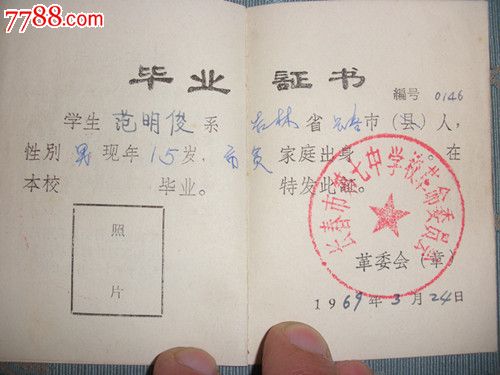 7788.com
毕业証书
編号 0146
学生 范明俊 系 吉林 省 市(县)人,
性别 男 现年 15 岁. 家庭出身 。在
本校 毕业。 特发此証。
照
片
长春市第七中学校革命委员会
革委会(章)
1969年3月24日